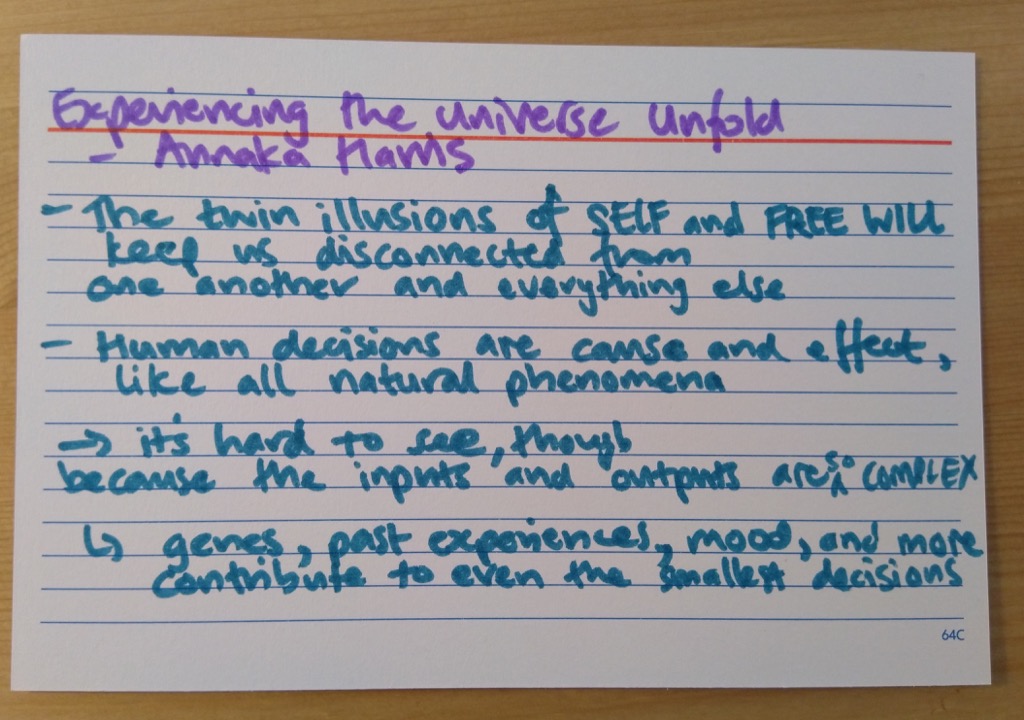 Experiencing the universe unfold
- Annaka Harris
- The twin illusions of SELF and FREE WILL
keep us disconnected from
one another and everything else
- Human decisions are cause and effect,
like all natural phenomena
→ it's hard to see, though
because the inputs and outputs are so COMPLEX
↳ genes, past experiences, mood, and more
contribute to even the smallest decisions
64C